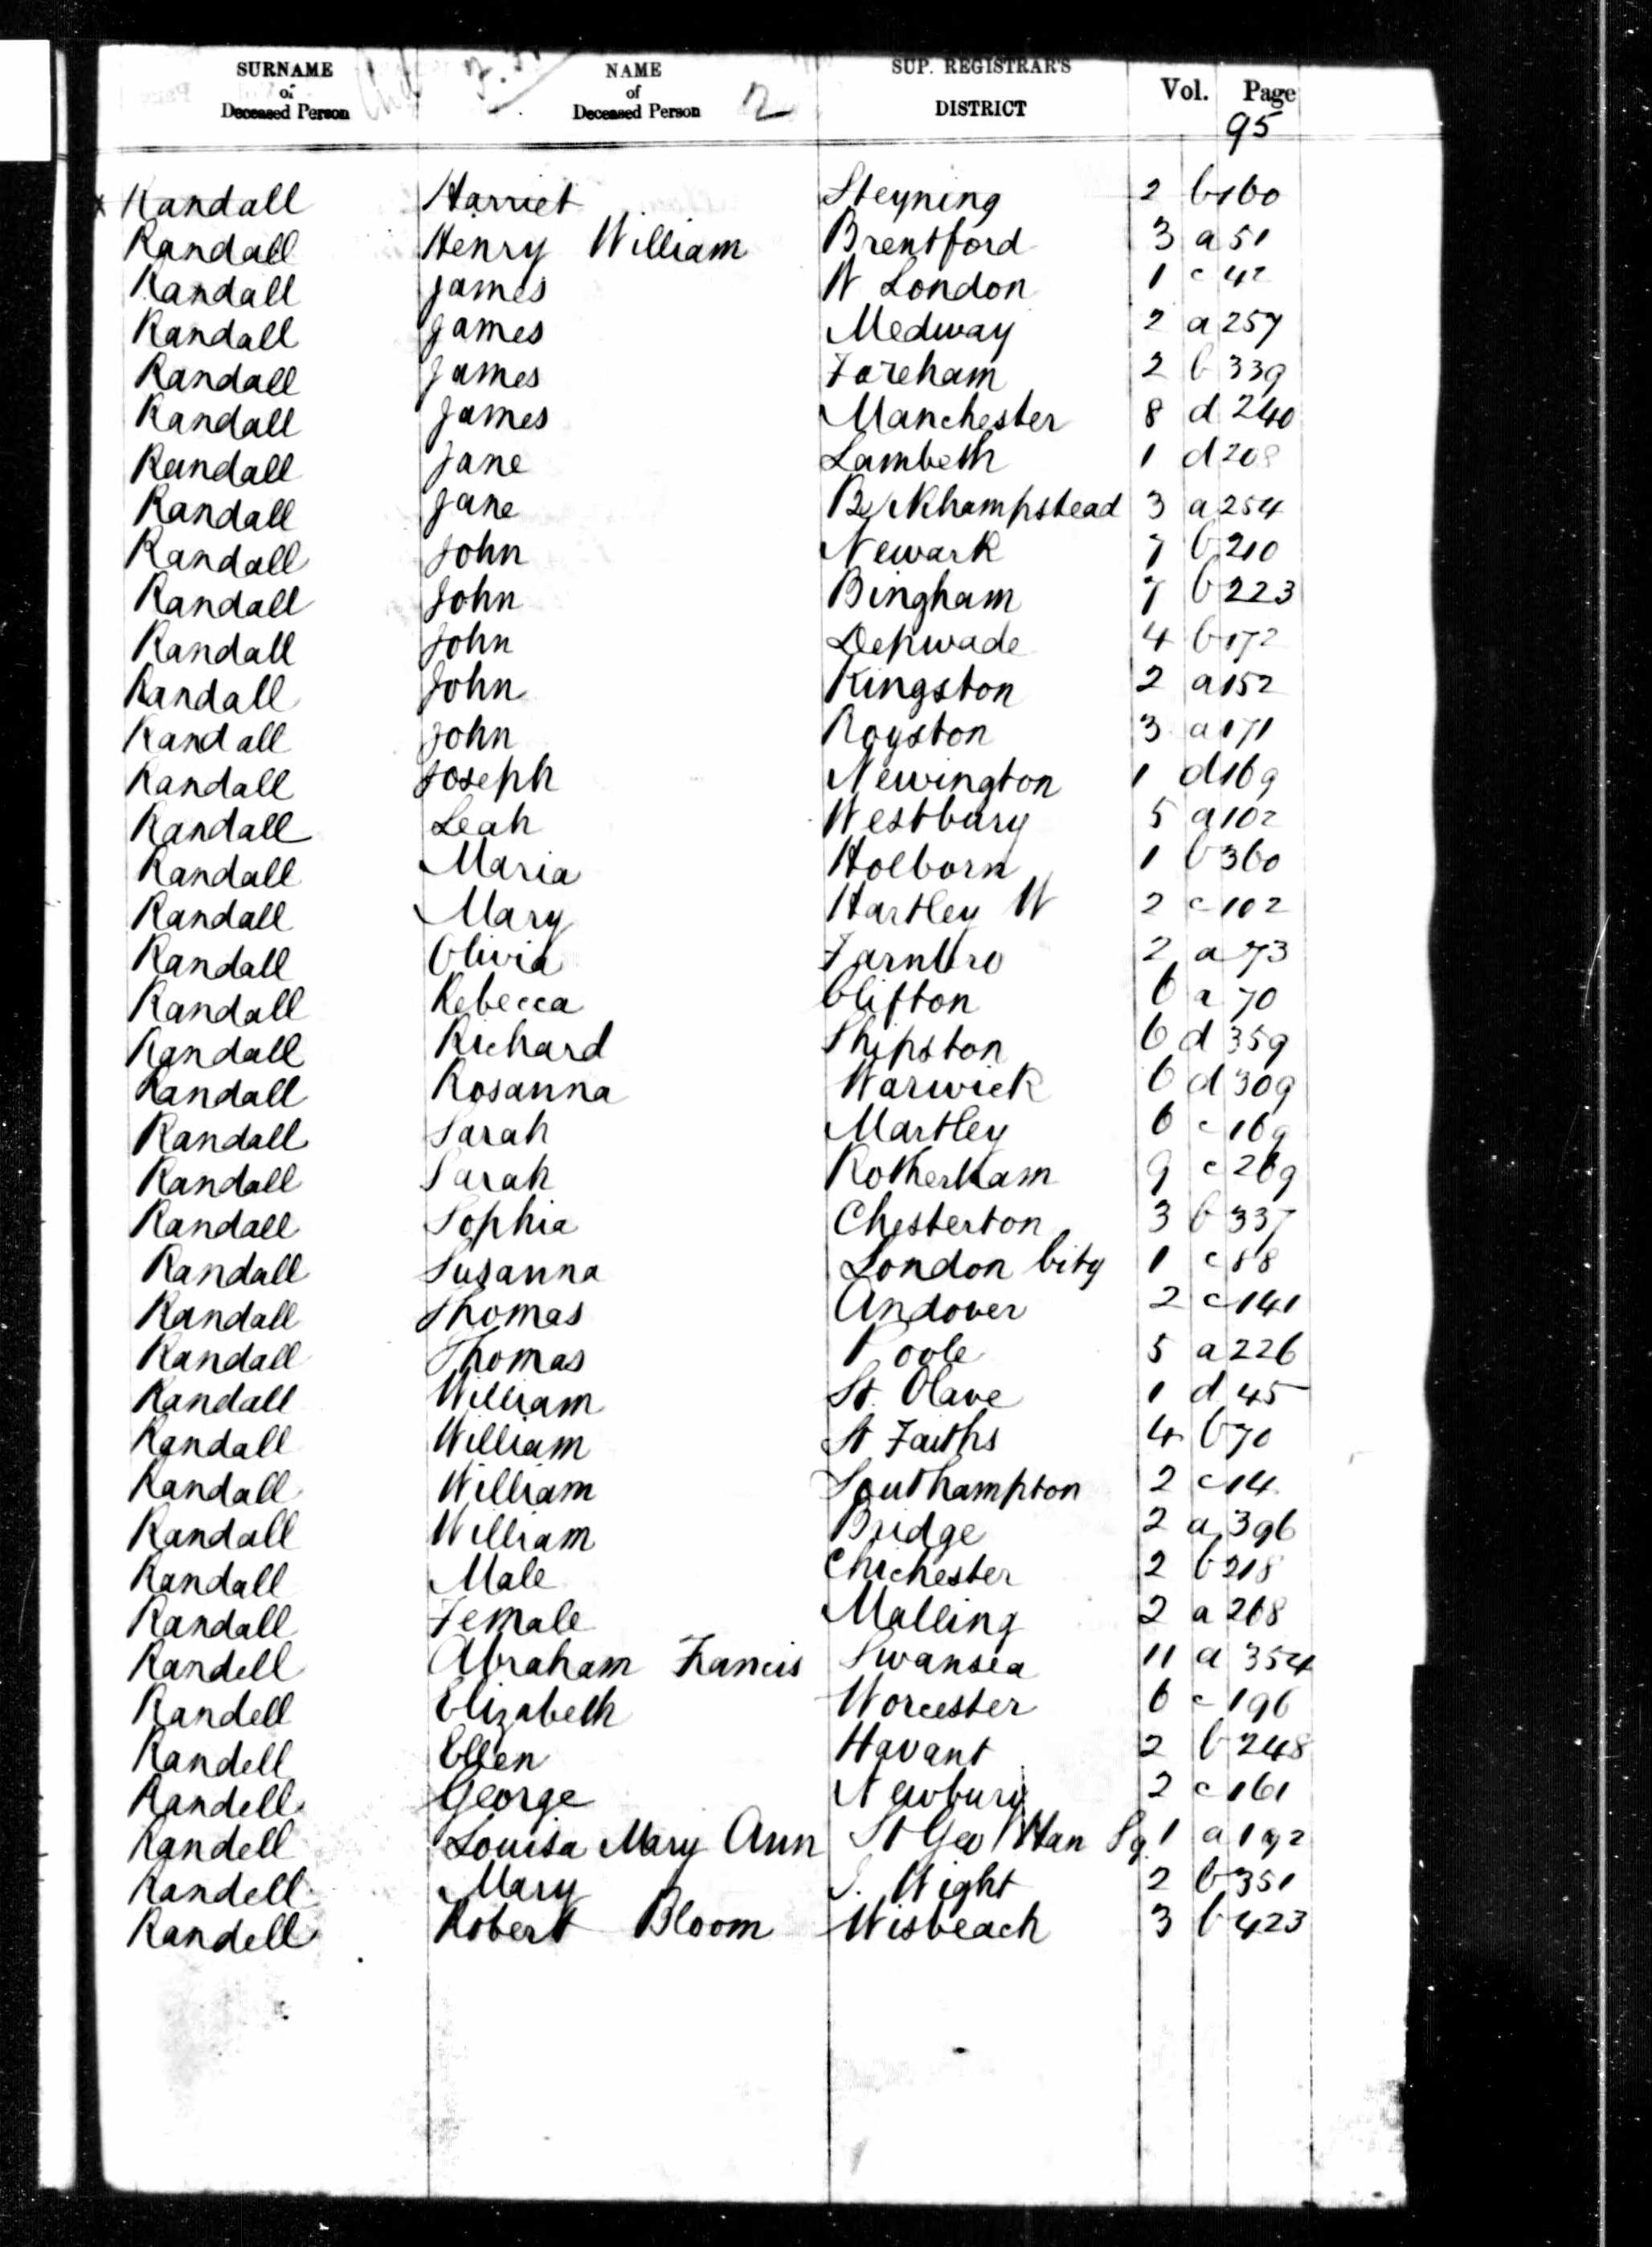 SURNAME of Deceased Person NAME of Deceased Person 2 SUP. REGISTRAR'S DISTRICT Vol. Page
95
Randall Harriet Steyning 2 b 160
Randall Henry William Brentford 3 a 51
Randall James W London 1 c 42
Randall James Medway 2 a 257
Randall James Fareham 2 b 339
Randall James Manchester 8 d 240
Randall Jane Lambeth 1 d 208
Randall Jane Berkhampstead 3 a 254
Randall John Newark 7 b 210
Randall John Bingham 7 b 223
Randall John Depwade 4 b 172
Randall John Kingston 2 a 152
Randall John Royston 3 a 171
Randall Joseph Newington 1 d 169
Randall Leah Westbury 5 a 102
Randall Maria Holborn 1 b 360
Randall Mary Hartley W 2 c 102
Randall Olivia Farnbro 2 a 73
Randall Rebecca Clifton 6 a 70
Randall Richard Shipston 6 d 359
Randall Rosanna Warwick 6 d 309
Randall Sarah Martley 6 c 169
Randall Sarah Rotherham 9 c 269
Randall Sophia Chesterton 3 b 337
Randall Susanna London City 1 c 88
Randall Thomas Andover 2 c 141
Randall Thomas Poole 5 a 226
Randall William St. Olave 1 d 45
Randall William St Faiths 4 b 70
Randall William Southampton 2 c 14
Randall William Bridge 2 a 396
Randall Male Chichester 2 b 218
Randall Female Malling 2 a 268
Randell Abraham Francis Swansea 11 a 354
Randell Elizabeth Worcester 6 c 196
Randell Ellen Havant 2 b 248
Randell George Newbury 2 c 161
Randell Louisa Mary Ann St Geo Han Sq. 1 a
Randell Mary I. Wight 2 b 351
Randell Robert Bloom Wisbeach 3 b 423